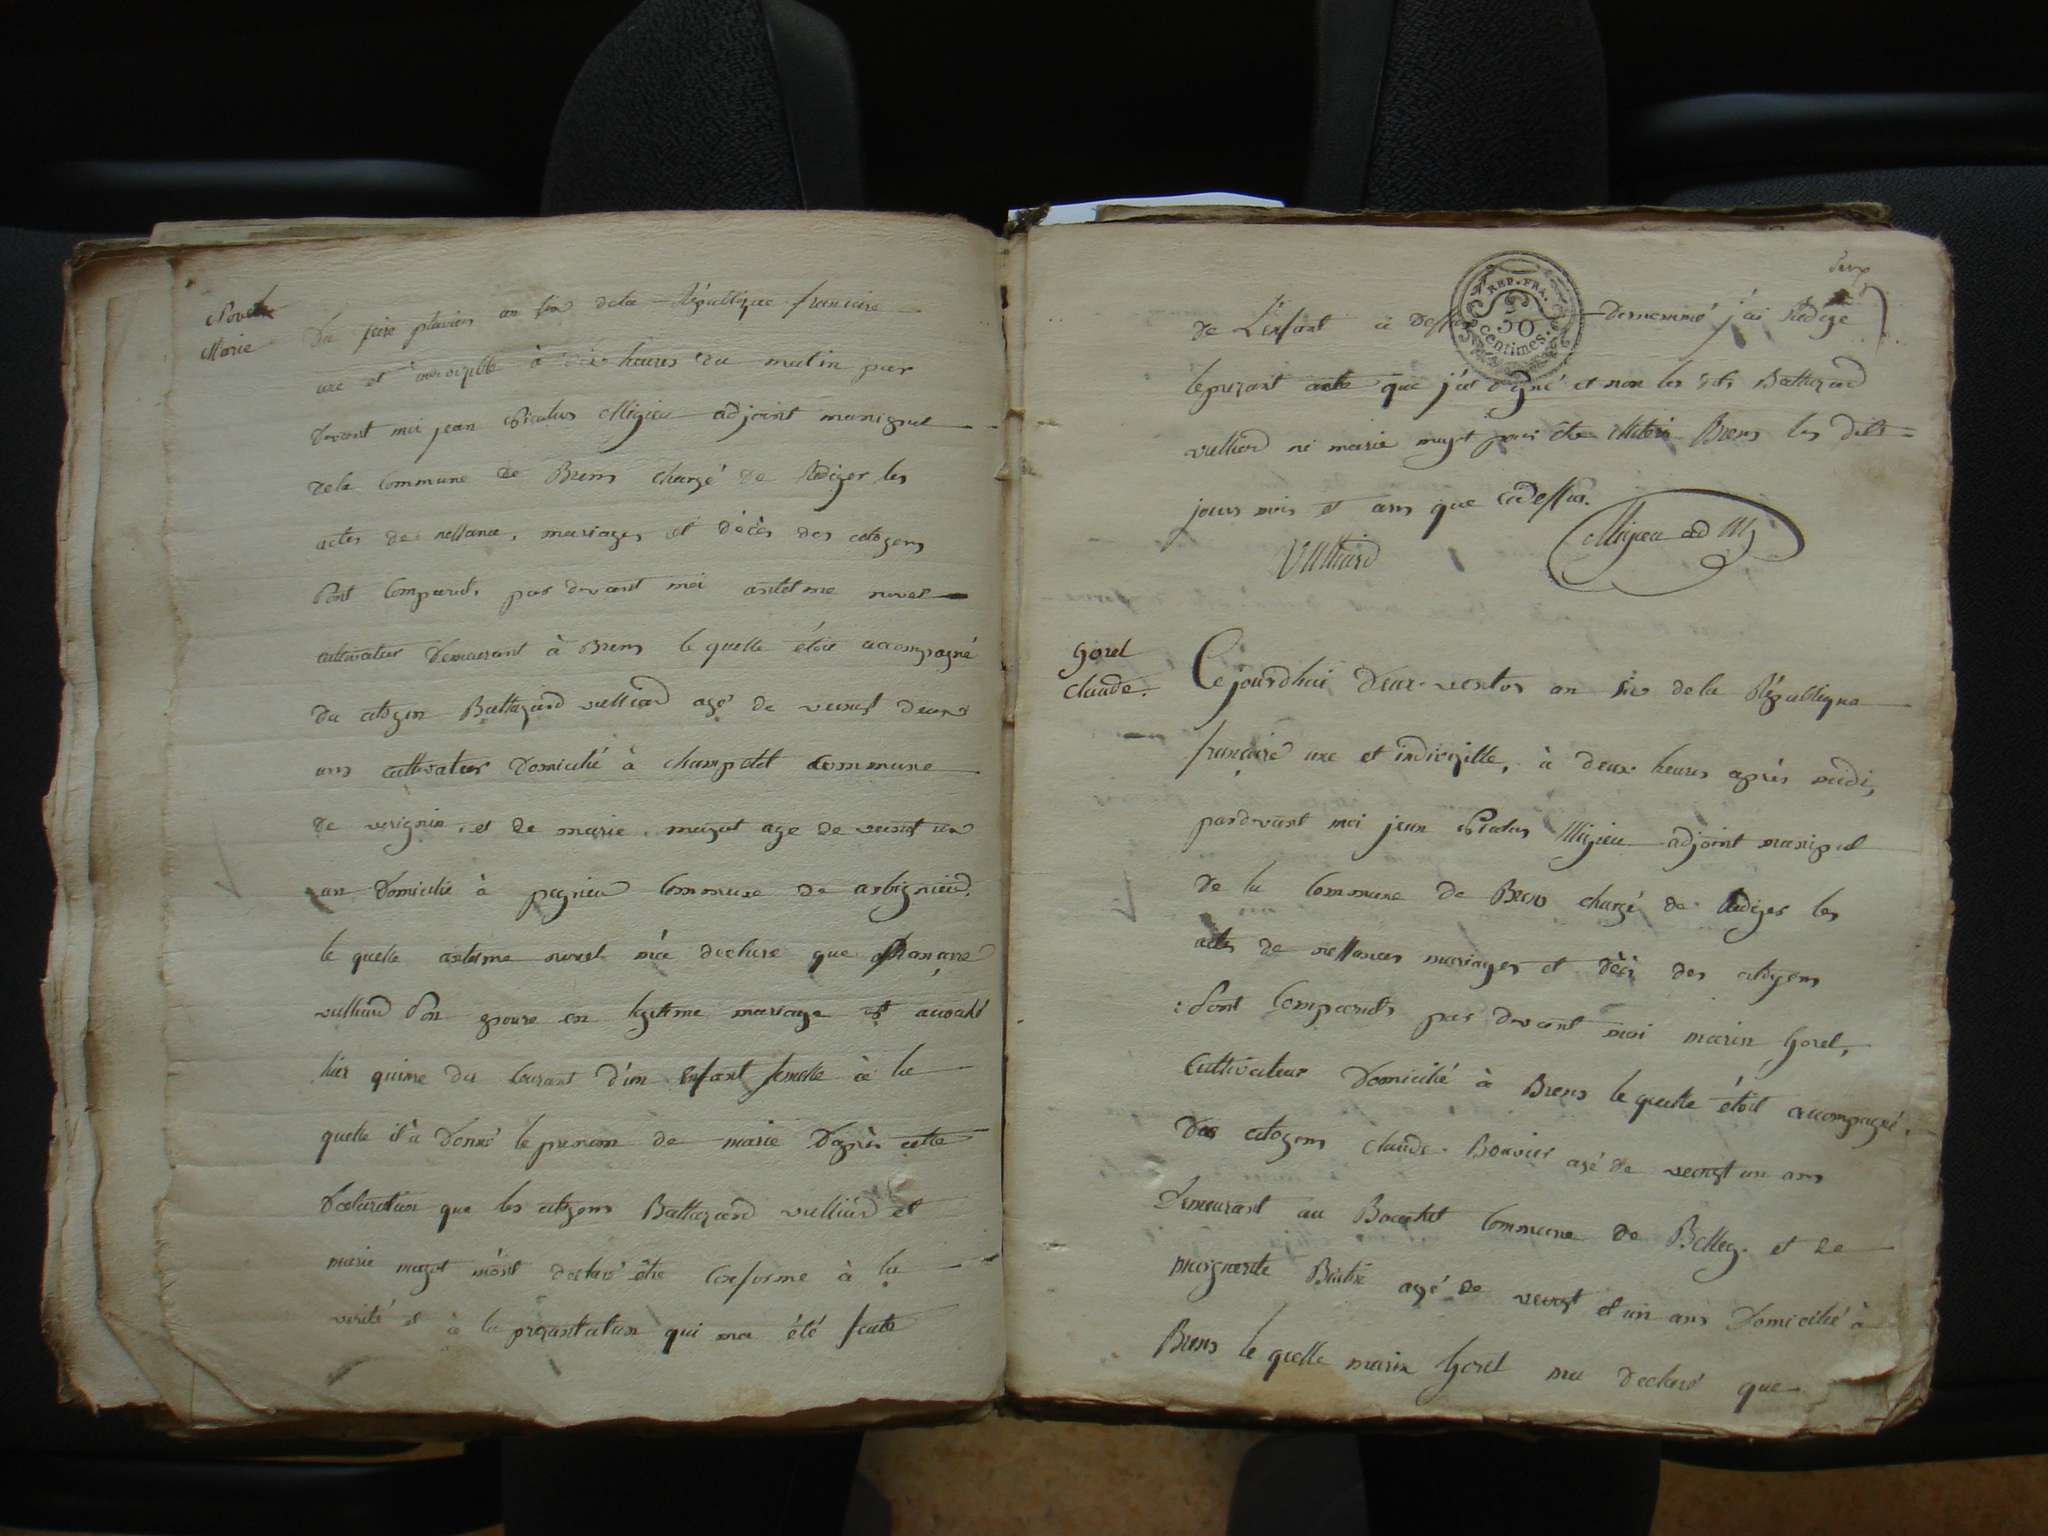 Novel
Marie
Du seize pluvios an six de la République francaise
une et indivizible à dix heures du matin par
devant moi jean Nicolas Migieu adjoint municipal
de la Commune de Brens chargé de Rediger les
actes de nessance, mariages et décès des citoyens
sont Comparut, par devant moi antelme novel
cultivateur Demeurant à Brens le quelle étoit accompagné
du citoyen Baltazard vulliard agé de veint deux
ans cultivateur Domicilié à champtel Commune
de verignin, et de marie mugot age de veint un
an Domicilie à pegnieu Commune de arbignieu,
le quelle antelme novel m'a declare que francoise
vulliard Son epouse en legitime mariage est acouché
hier quinse du Courant d'un Enfant femelle à la
quelle il à Donné le prenom de marie D'après cette
Declaration que les citoyens Baltazard vulliard et
marie mugot m'ont declaré être Conforme à la
verité et à la prezantation qui ma été faite
deux
de L'enfant ci dessus denommé j'ai Redigé
REP. FRA.
50
centimes.
le prezant acte que j'ai signé et non les dits Baltazard
vulliard ni marie mugot pour être illiteré Brens les dits
jours mois et ans que cidessus.
Vulliard
Migieu ad M
Gorel
Claude.
Ce jourdhui Deux ventos an six de la République
francaise une et indivizible, à deux heures après midi,
pardevant moi jean Nicolas Migieu adjoint municipal
de la Commune de Brens chargé de Rediger les
actes de nessances mariages et décè des citoyens
Sont Comparuts par devant moi marin Gorel,
Cultivateur Domicilié à Brens le quelle étoit accompagné.
Des citoyens Claude Bouvier agé de veingt un ans
Demeurant au Bouchet Commune de Belley et de
marguerite agé de veingt et un ans Domicilié à
Brens le quelle marin Gorel ma declaré que